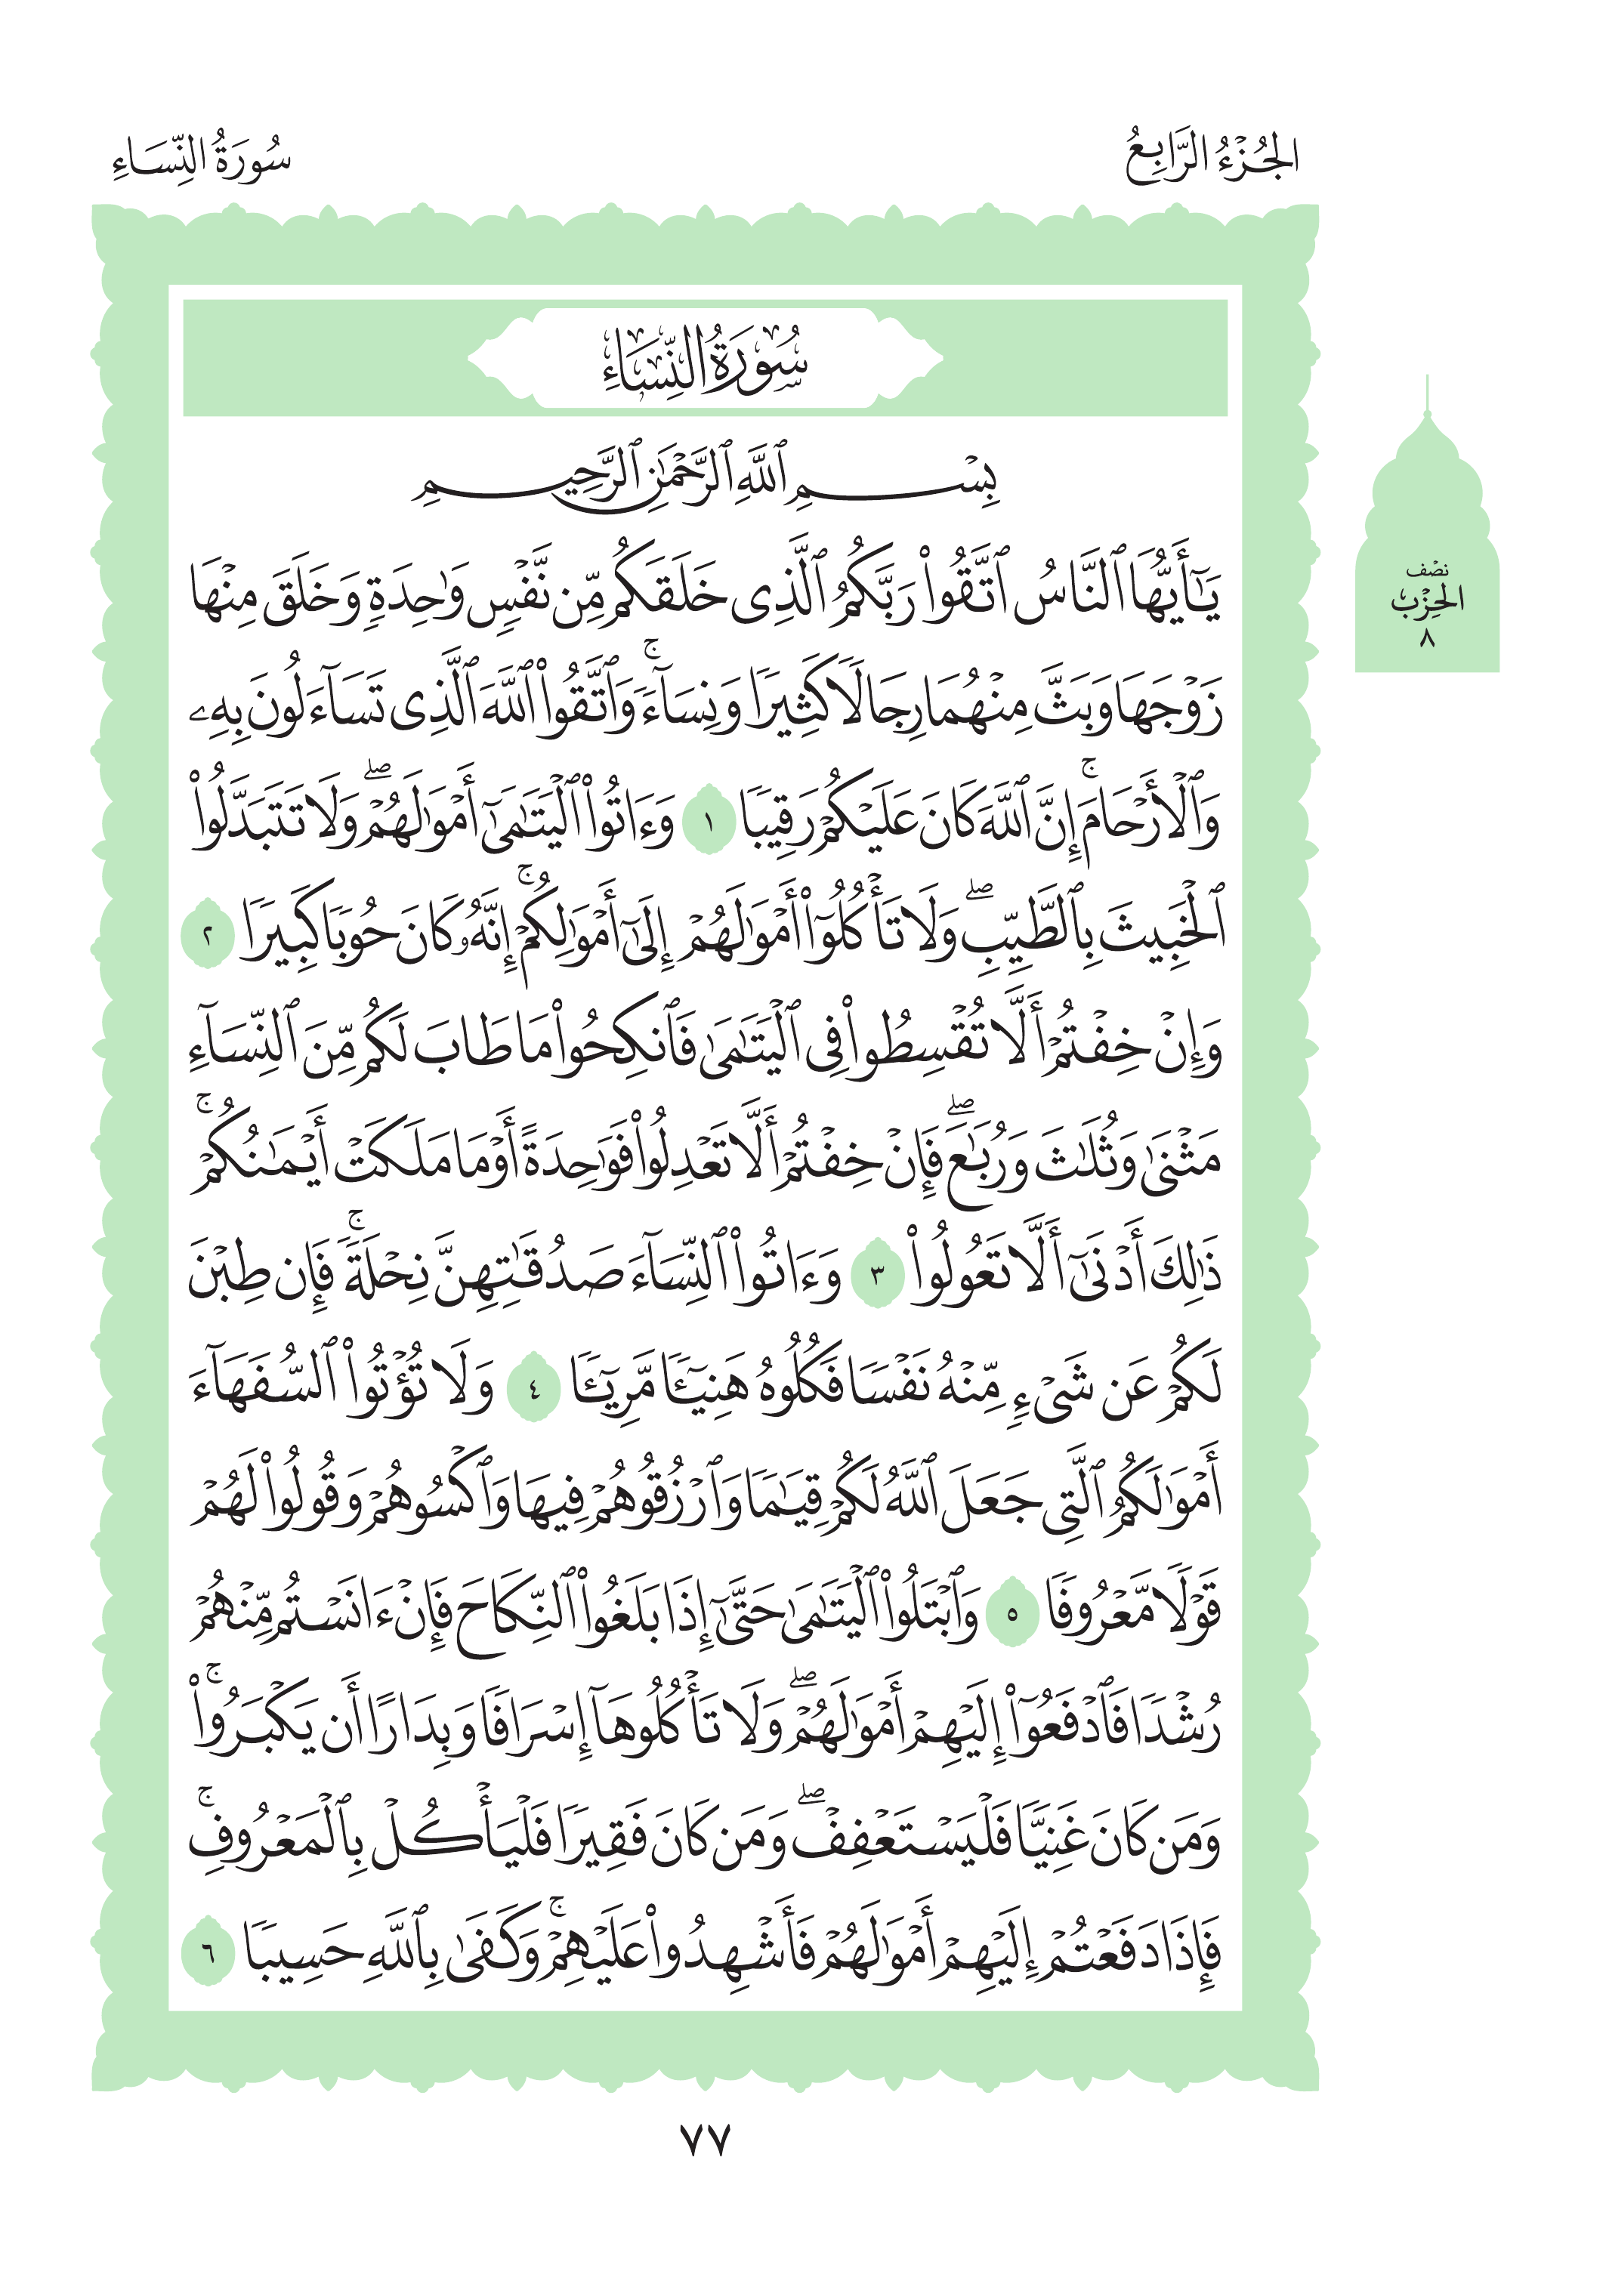 الجُزْءُ الرَّابِعُ
سُورَةُ النِّسَاءِ
سُورَةُ النِّسَاءِ
نصف
الحِزْب
٨
بِسْمِ ٱللَّهِ ٱلرَّحْمَٰنِ ٱلرَّحِيمِ
يَٰٓأَيُّهَا ٱلنَّاسُ ٱتَّقُوا۟ رَبَّكُمُ ٱلَّذِى خَلَقَكُم مِّن نَّفْسٍ وَٰحِدَةٍ وَخَلَقَ مِنْهَا
زَوْجَهَا وَبَثَّ مِنْهُمَا رِجَالًا كَثِيرًا وَنِسَآءً ۚ وَٱتَّقُوا۟ ٱللَّهَ ٱلَّذِى تَسَآءَلُونَ بِهِۦ
وَٱلْأَرْحَامَ ۚ إِنَّ ٱللَّهَ كَانَ عَلَيْكُمْ رَقِيبًا ١ وَءَاتُوا۟ ٱلْيَتَٰمَىٰٓ أَمْوَٰلَهُمْ ۖ وَلَا تَتَبَدَّلُوا۟
ٱلْخَبِيثَ بِٱلطَّيِّبِ ۖ وَلَا تَأْكُلُوٓا۟ أَمْوَٰلَهُمْ إِلَىٰٓ أَمْوَٰلِكُمْ ۚ إِنَّهُۥ كَانَ حُوبًا كَبِيرًا ٢
وَإِنْ خِفْتُمْ أَلَّا تُقْسِطُوا۟ فِى ٱلْيَتَٰمَىٰ فَٱنكِحُوا۟ مَا طَابَ لَكُم مِّنَ ٱلنِّسَآءِ
مَثْنَىٰ وَثُلَٰثَ وَرُبَٰعَ ۖ فَإِنْ خِفْتُمْ أَلَّا تَعْدِلُوا۟ فَوَٰحِدَةً أَوْ مَا مَلَكَتْ أَيْمَٰنُكُمْ ۚ
ذَٰلِكَ أَدْنَىٰٓ أَلَّا تَعُولُوا۟ ٣ وَءَاتُوا۟ ٱلنِّسَآءَ صَدُقَٰتِهِنَّ نِحْلَةً ۚ فَإِن طِبْنَ
لَكُمْ عَن شَىْءٍ مِّنْهُ نَفْسًا فَكُلُوهُ هَنِيٓـًٔا مَّرِيٓـًٔا ٤ وَلَا تُؤْتُوا۟ ٱلسُّفَهَآءَ
أَمْوَٰلَكُمُ ٱلَّتِى جَعَلَ ٱللَّهُ لَكُمْ قِيَٰمًا وَٱرْزُقُوهُمْ فِيهَا وَٱكْسُوهُمْ وَقُولُوا۟ لَهُمْ
قَوْلًا مَّعْرُوفًا ٥ وَٱبْتَلُوا۟ ٱلْيَتَٰمَىٰ حَتَّىٰٓ إِذَا بَلَغُوا۟ ٱلنِّكَاحَ فَإِنْ ءَانَسْتُم مِّنْهُمْ
رُشْدًا فَٱدْفَعُوٓا۟ إِلَيْهِمْ أَمْوَٰلَهُمْ ۖ وَلَا تَأْكُلُوهَآ إِسْرَافًا وَبِدَارًا أَن يَكْبَرُوا۟ ۚ
وَمَن كَانَ غَنِيًّا فَلْيَسْتَعْفِفْ ۖ وَمَن كَانَ فَقِيرًا فَلْيَأْكُلْ بِٱلْمَعْرُوفِ ۚ
فَإِذَا دَفَعْتُمْ إِلَيْهِمْ أَمْوَٰلَهُمْ فَأَشْهِدُوا۟ عَلَيْهِمْ ۚ وَكَفَىٰ بِٱللَّهِ حَسِيبًا ٦
٧٧